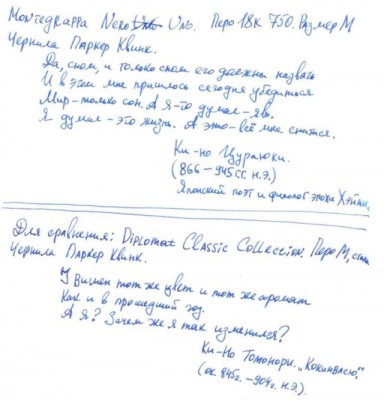 Montegrappa Nero Uno. Перо 18К 750. Размер М
Чернила Паркер Квинк.
Да, сном, и только сном его должны назвать
И в этом мне пришлось сегодня убедиться
Мир-только сон. А я-то думал-явь.
Я думал-это жизнь. А это-всё мне снится.
Ки-но Цураюки.
(866-945гг. н.э.)
Японский поэт и филолог эпохи Хэйан.
Для сравнения: Diplomat Classic Collection. Перо М, сталь.
Чернила Паркер Квинк.
У вишен тот же цвет и тот же аромат
Как и в прошедший год.
А я? Зачем же я так изменился?
Ки-но Томонори. „Кокинвасю,"
(ок. 845г. -904г. н.э.).